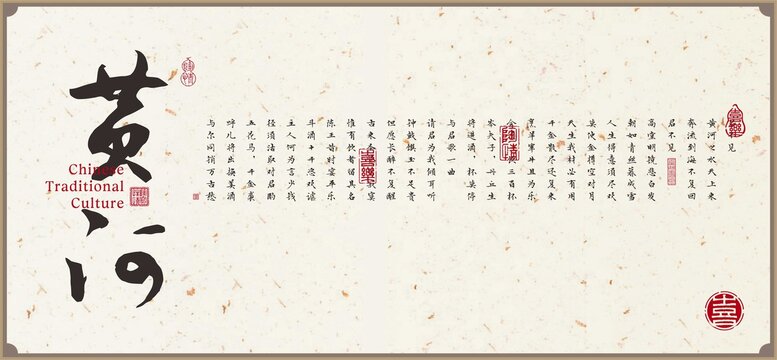 見
黄河之水天上来
奔流到海不复回
君不見
高堂明镜悲白发
朝如青丝暮成雪
人生得意须尽欢
莫使金樽空对月
天生我材必有用
千金散尽还复来
烹羊宰牛且为乐
会三百杯
岑夫子，丹丘生
将进酒，杯莫停
与君歌一曲
请君为我倾耳听
钟鼓馔玉不足贵
但愿长醉不复醒
古来寂寞
惟有饮者留其名
陈王昔时宴平乐
斗酒十千恣欢谑
主人何为言少钱
径须沽取对君酌
五花马，千金裘
呼儿将出换美酒
与尔同销万古愁
黄河
Chinese
Traditional
Culture